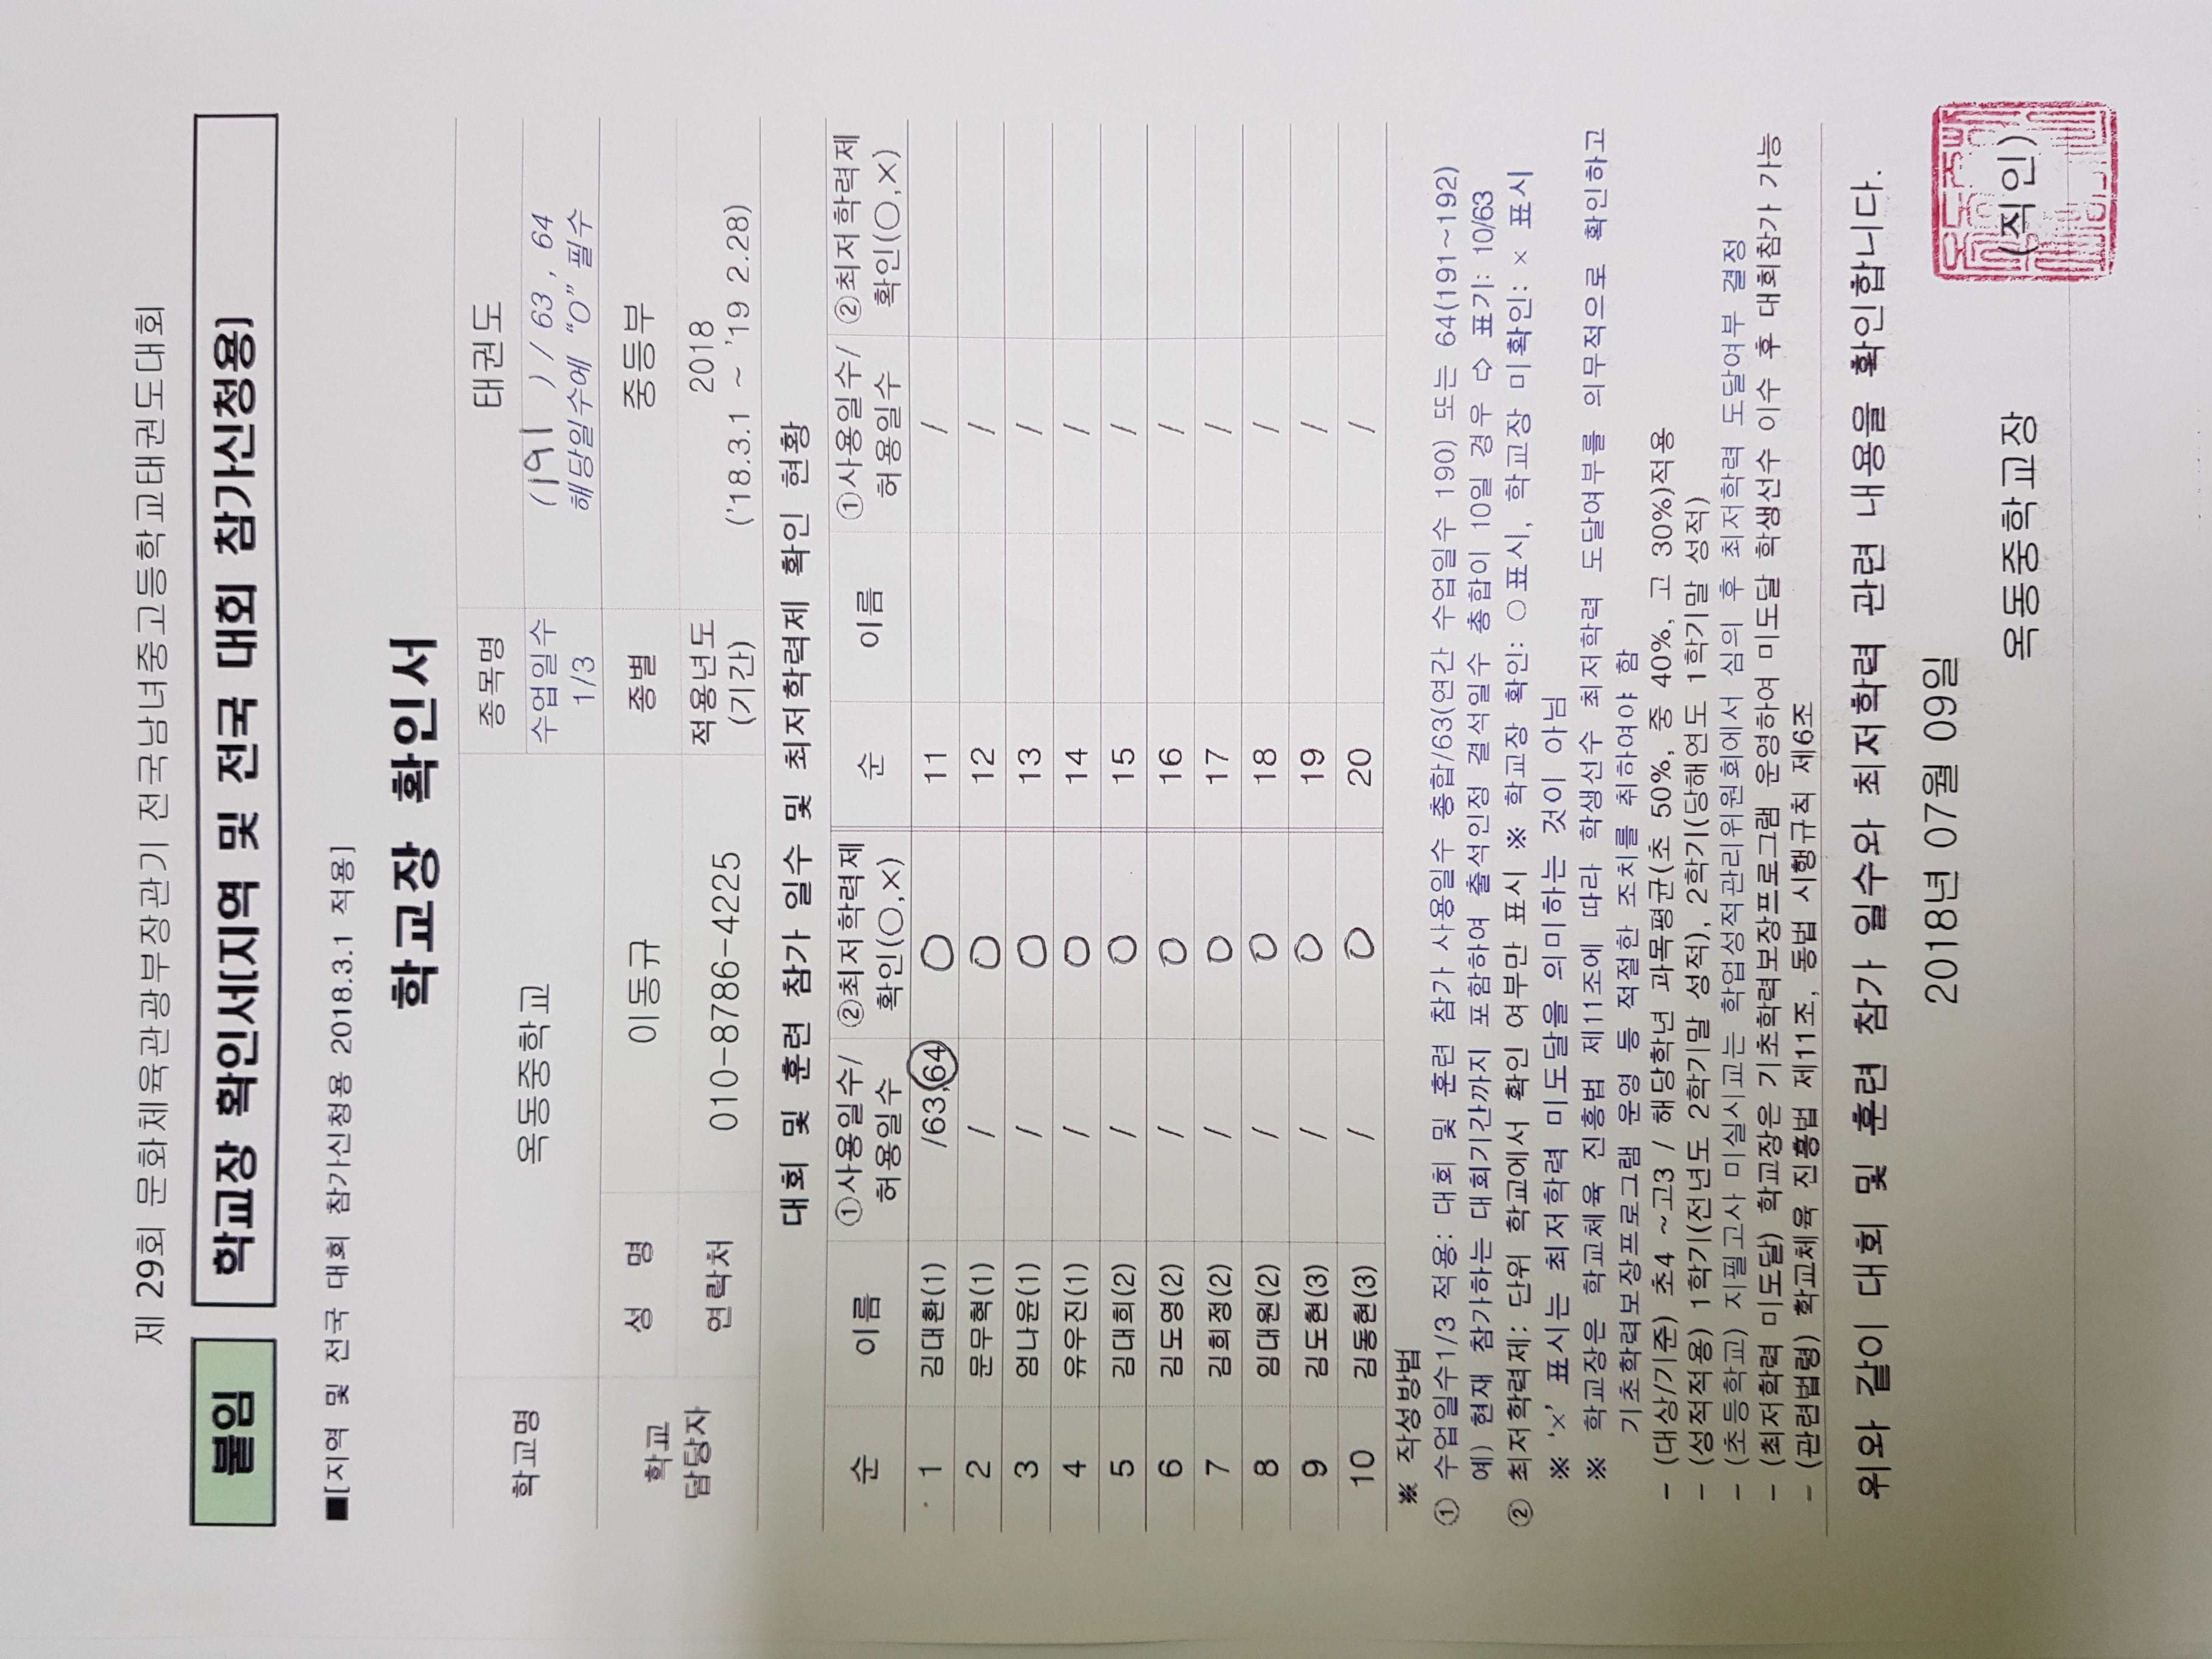 제 29회 문화체육관광부장관기 전국남녀중고등학교태권도대회
붙임 학교장 확인서(지역 및 전국 대회 참가신청용)
■[지역 및 전국 대회 참가신청용 2018.3.1 적용]
학교장 확인서
학교명 옥동중학교 종목명 태권도
수업일수 1/3 (191 ) / 63 , 64
해당일수에 "O" 필수
학교 담당자 성 명 이동규 종별 중등부
연락처 010-8786-4225 적용년도 (기간) 2018
('18.3.1 ~ '19 2.28)
대회 및 훈련 참가 일수 및 최저학력제 확인 현황
순 이름 ①사용일수/허용일수 ②최저학력제 확인(○,×) 순 이름 ①사용일수/허용일수 ②최저학력제 확인(○,×)
1 김대환(1) /63,64 ○ 11 /
2 문무혁(1) / ○ 12 /
3 엄나윤(1) / ○ 13 /
4 유우진(1) / ○ 14 /
5 김대희(2) / ○ 15 /
6 김도영(2) / ○ 16 /
7 김희정(2) / ○ 17 /
8 임대원(2) / ○ 18 /
9 김도현(3) / ○ 19 /
10 김동현(3) / ○ 20 /
※ 작성방법
① 수업일수1/3 적용: 대회 및 훈련 참가 사용일수 총합/63(연간 수업일수 190) 또는 64(191~192)
예) 현재 참가하는 대회기간까지 포함하여 출석인정 결석일수 총합이 10일 경우 ⇨ 표기: 10/63
② 최저학력제: 단위 학교에서 확인 여부만 표시 ※ 학교장 확인: ○표시, 학교장 미확인: × 표시
※ '×' 표시는 최저학력 미도달을 의미하는 것이 아님
※ 학교장은 학교체육 진흥법 제11조에 따라 학생선수 최저학력 도달여부를 의무적으로 확인하고
기초학력보장프로그램 운영 등 적절한 조치를 취하여야 함
- (대상/기준) 초4 ~고3 / 해당학년 과목평균(초 50%, 중 40%, 고 30%)적용
- (성적적용) 1학기(전년도 2학기말 성적), 2학기(당해연도 1학기말 성적)
- (초등학교) 지필고사 미실시교는 학업성적관리위원회에서 심의 후 최저학력 도달여부 결정
- (최저학력 미도달) 학교장은 기초학력보장프로그램 운영하여 미도달 학생선수 이수 후 대회참가 가능
- (관련법령) 학교체육 진흥법 제11조, 동법 시행규칙 제6조
위와 같이 대회 및 훈련 참가 일수와 최저학력 관련 내용을 확인합니다.
2018년 07월 09일
옥동중학교장 (직인)